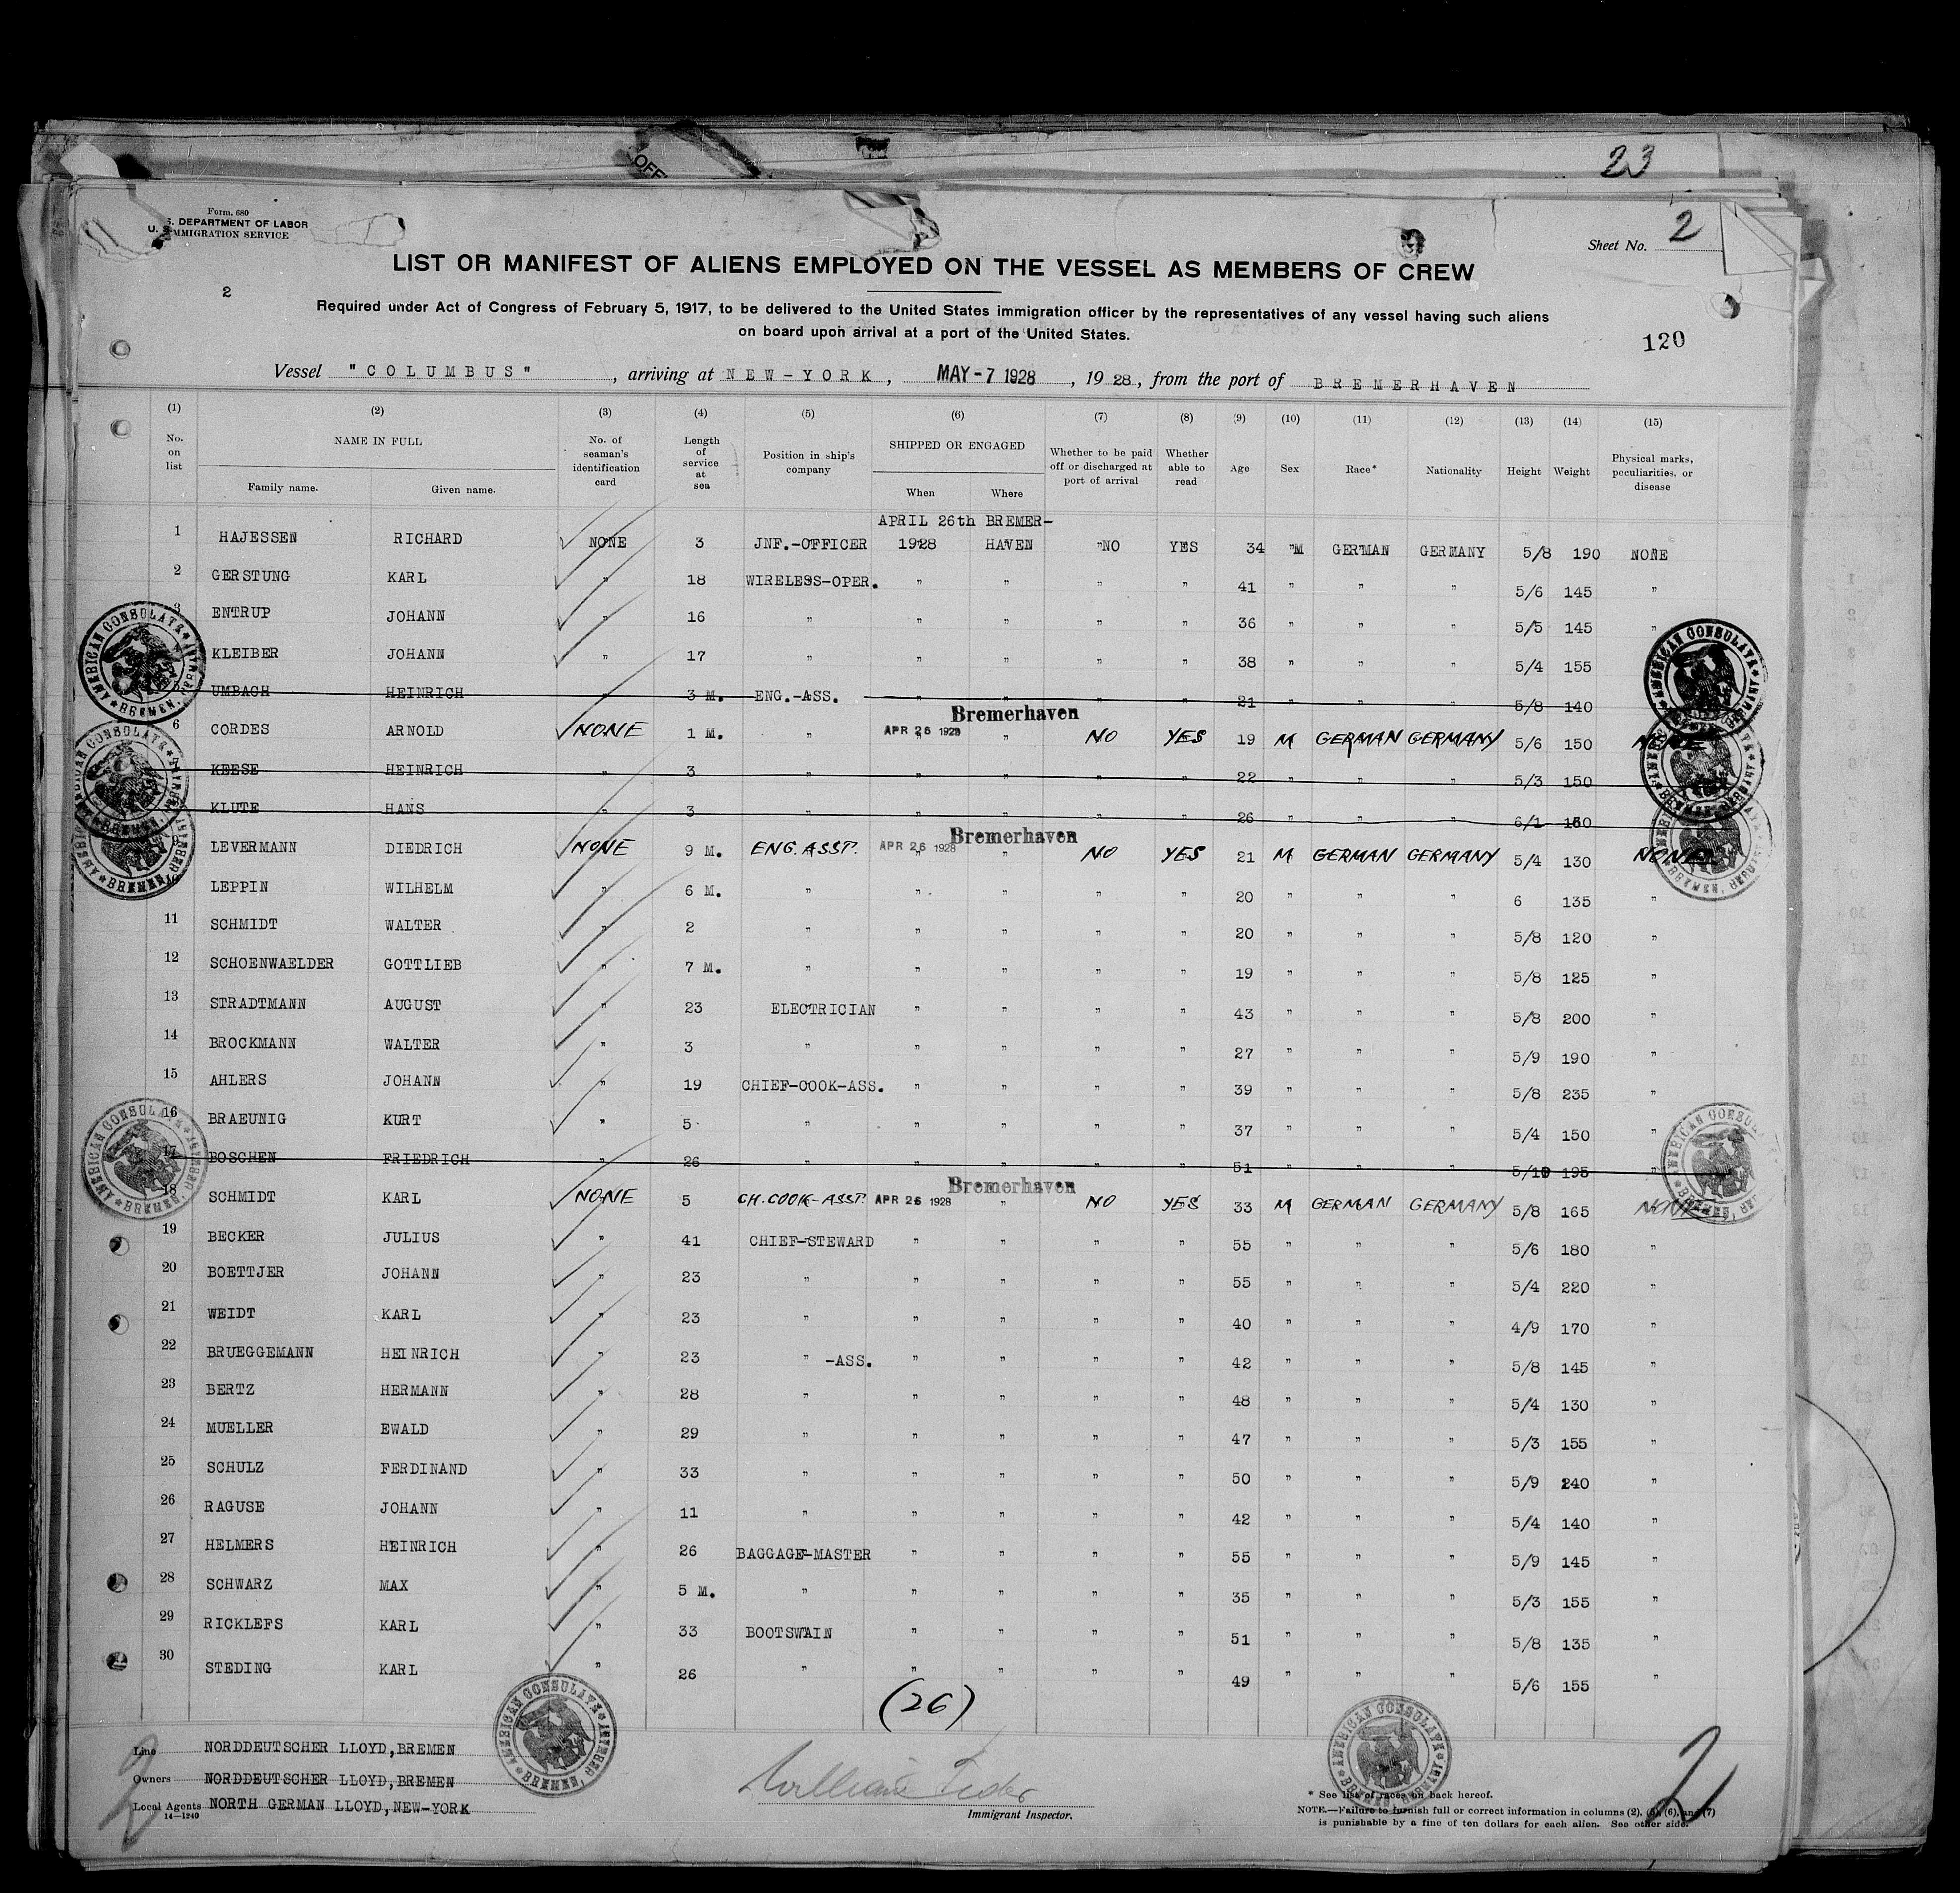 23
OFF
Form 680
U. S. DEPARTMENT OF LABOR
IMMIGRATION SERVICE
Sheet No. 2
LIST OR MANIFEST OF ALIENS EMPLOYED ON THE VESSEL AS MEMBERS OF CREW
2
Required under Act of Congress of February 5, 1917, to be delivered to the United States immigration officer by the representatives of any vessel having such aliens
on board upon arrival at a port of the United States.
120
Vessel "COLUMBUS", arriving at NEW-YORK, MAY-7 1928, 1928, from the port of BREMERHAVEN
(1) (2) (3) (4) (5) (6) (7) (8) (9) (10) (11) (12) (13) (14) (15)
No. on list NAME IN FULL Family name. Given name. No. of seaman's identification card Length of service at sea Position in ship's company SHIPPED OR ENGAGED When Where Whether to be paid off or discharged at port of arrival Whether able to read Age Sex Race* Nationality Height Weight Physical marks, peculiarities, or disease
APRIL 26th BREMER-
1 HAJESSEN RICHARD NONE 3 JNF.-OFFICER 1928 HAVEN "NO YES 34 "M GERMAN GERMANY 5/8 190 NONE
2 GERSTUNG KARL " 18 WIRELESS-OPER. " " " " 41 " " " 5/6 145 "
3 ENTRUP JOHANN " 16 " " " " " 36 " " " 5/5 145 "
KLEIBER JOHANN " 17 " " " " " 38 " " " 5/4 155
5 UMBACH HEINRICH " 3 M. ENG.-ASS. " " " " 21 " " " 5/8 140
Bremerhaven
6 CORDES ARNOLD NONE 1 M. " APR 26 1928 " NO YES 19 M GERMAN GERMANY 5/6 150 NONE
7 KEESE HEINRICH " 3 " " " " " 22 " " " 5/3 150
KLUTE HANS " 3 " " " " " 26 " " " 6/1 160
Bremerhaven
9 LEVERMANN DIEDRICH NONE 9 M. ENG. ASST. APR 26 1928 " NO YES 21 M GERMAN GERMANY 5/4 130 NONE
10 LEPPIN WILHELM " 6 M. " " " " " 20 " " " 6 135 "
11 SCHMIDT WALTER " 2 " " " " " 20 " " " 5/8 120 "
12 SCHOENWAELDER GOTTLIEB " 7 M. " " " " " 19 " " " 5/8 125 "
13 STRADTMANN AUGUST " 23 ELECTRICIAN " " " " 43 " " " 5/8 200 "
14 BROCKMANN WALTER " 3 " " " " " 27 " " " 5/9 190 "
15 AHLERS JOHANN " 19 CHIEF-COOK-ASS. " " " " 39 " " " 5/8 235 "
16 BRAEUNIG KURT " 5 " " " " " 37 " " " 5/4 150 "
17 BOSCHEN FRIEDRICH " 26 " " " " " 51 " " " 5/10 195 "
Bremerhaven
18 SCHMIDT KARL NONE 5 CH. COOK-ASST. APR 26 1928 " NO YES 33 M GERMAN GERMANY 5/8 165 NONE
19 BECKER JULIUS " 41 CHIEF-STEWARD " " " " 55 " " " 5/6 180 "
20 BOETTJER JOHANN " 23 " " " " " 55 " " " 5/4 220 "
21 WEIDT KARL " 23 " " " " " 40 " " " 4/9 170 "
22 BRUEGGEMANN HEINRICH " 23 " -ASS. " " " " 42 " " " 5/8 145 "
23 BERTZ HERMANN " 28 " " " " " 48 " " " 5/4 130 "
24 MUELLER EWALD " 29 " " " " " 47 " " " 5/3 155 "
25 SCHULZ FERDINAND " 33 " " " " " 50 " " " 5/9 240 "
26 RAGUSE JOHANN " 11 " " " " " 42 " " " 5/4 140 "
27 HELMERS HEINRICH " 26 BAGGAGE-MASTER " " " " 55 " " " 5/9 145 "
28 SCHWARZ MAX " 5 M. " " " " " 35 " " " 5/3 155 "
29 RICKLEFS KARL " 33 BOOTSWAIN " " " " 51 " " " 5/8 135 "
30 STEDING KARL " 26 " " " " " 49 " " " 5/6 155 "
(26)
AMERICAN CONSULATE BREMEN, GERMANY
AMERICAN CONSULATE BREMEN, GERMANY
Line NORDDEUTSCHER LLOYD, BREMEN
Owners NORDDEUTSCHER LLOYD, BREMEN
Local Agents NORTH GERMAN LLOYD, NEW-YORK
14-1240
2
Immigrant Inspector.
* See list of races on back hereof.
NOTE.—Failure to furnish full or correct information in columns (2), (5), (6), and (7)
is punishable by a fine of ten dollars for each alien. See other side.
2